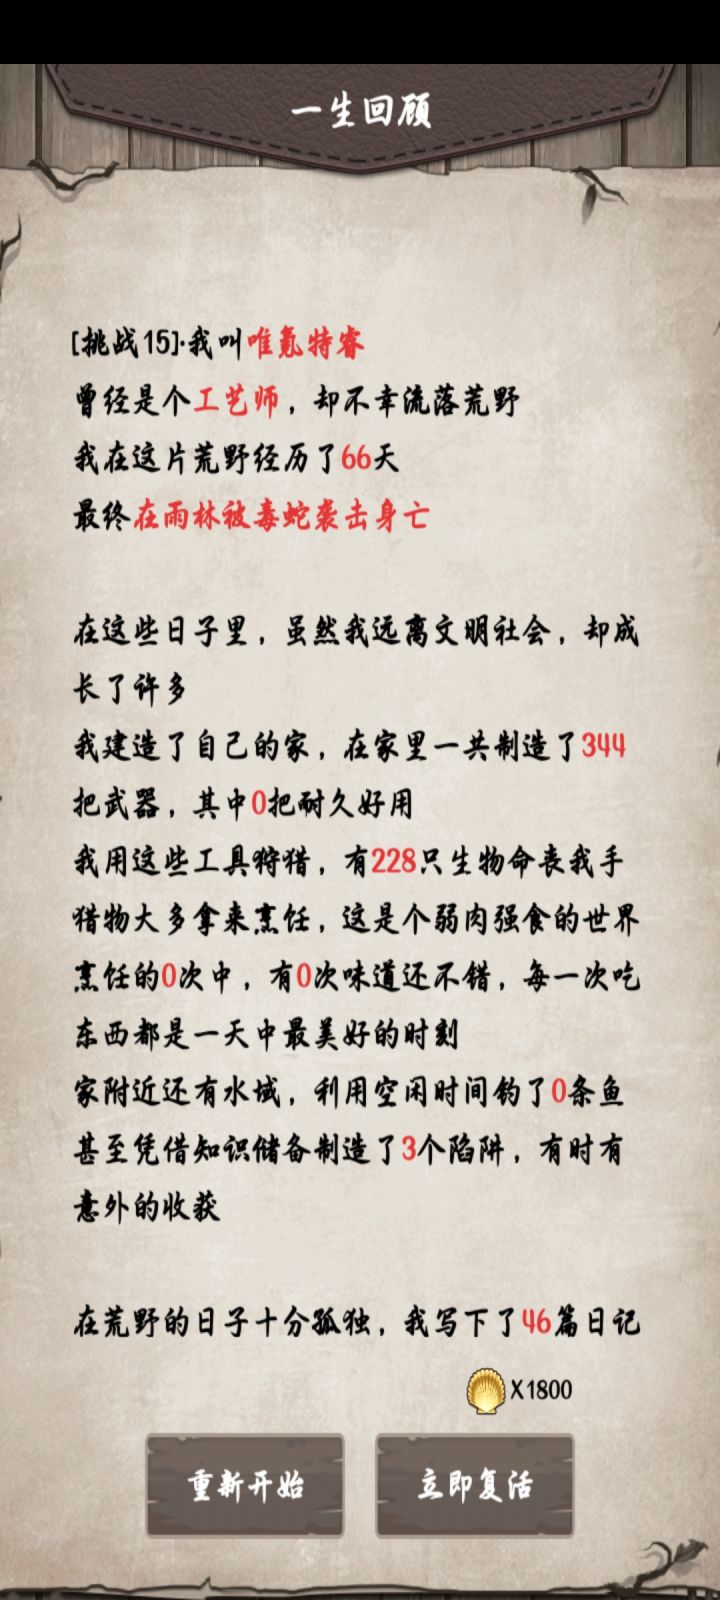 一生回顾
[挑战15]·我叫唯氪特睿
曾经是个工艺师，却不幸流落荒野
我在这片荒野经历了66天
最终在雨林被毒蛇袭击身亡
在这些日子里，虽然我远离文明社会，却成
长了许多
我建造了自己的家，在家里一共制造了344
把武器，其中0把耐久好用
我用这些工具狩猎，有228只生物命丧我手
猎物大多拿来烹饪，这是个弱肉强食的世界
烹饪的0次中，有0次味道还不错，每一次吃
东西都是一天中最美好的时刻
家附近还有水域，利用空闲时间钓了0条鱼
甚至凭借知识储备制造了3个陷阱，有时有
意外的收获
在荒野的日子十分孤独，我写下了46篇日记
X1800
重新开始
立即复活